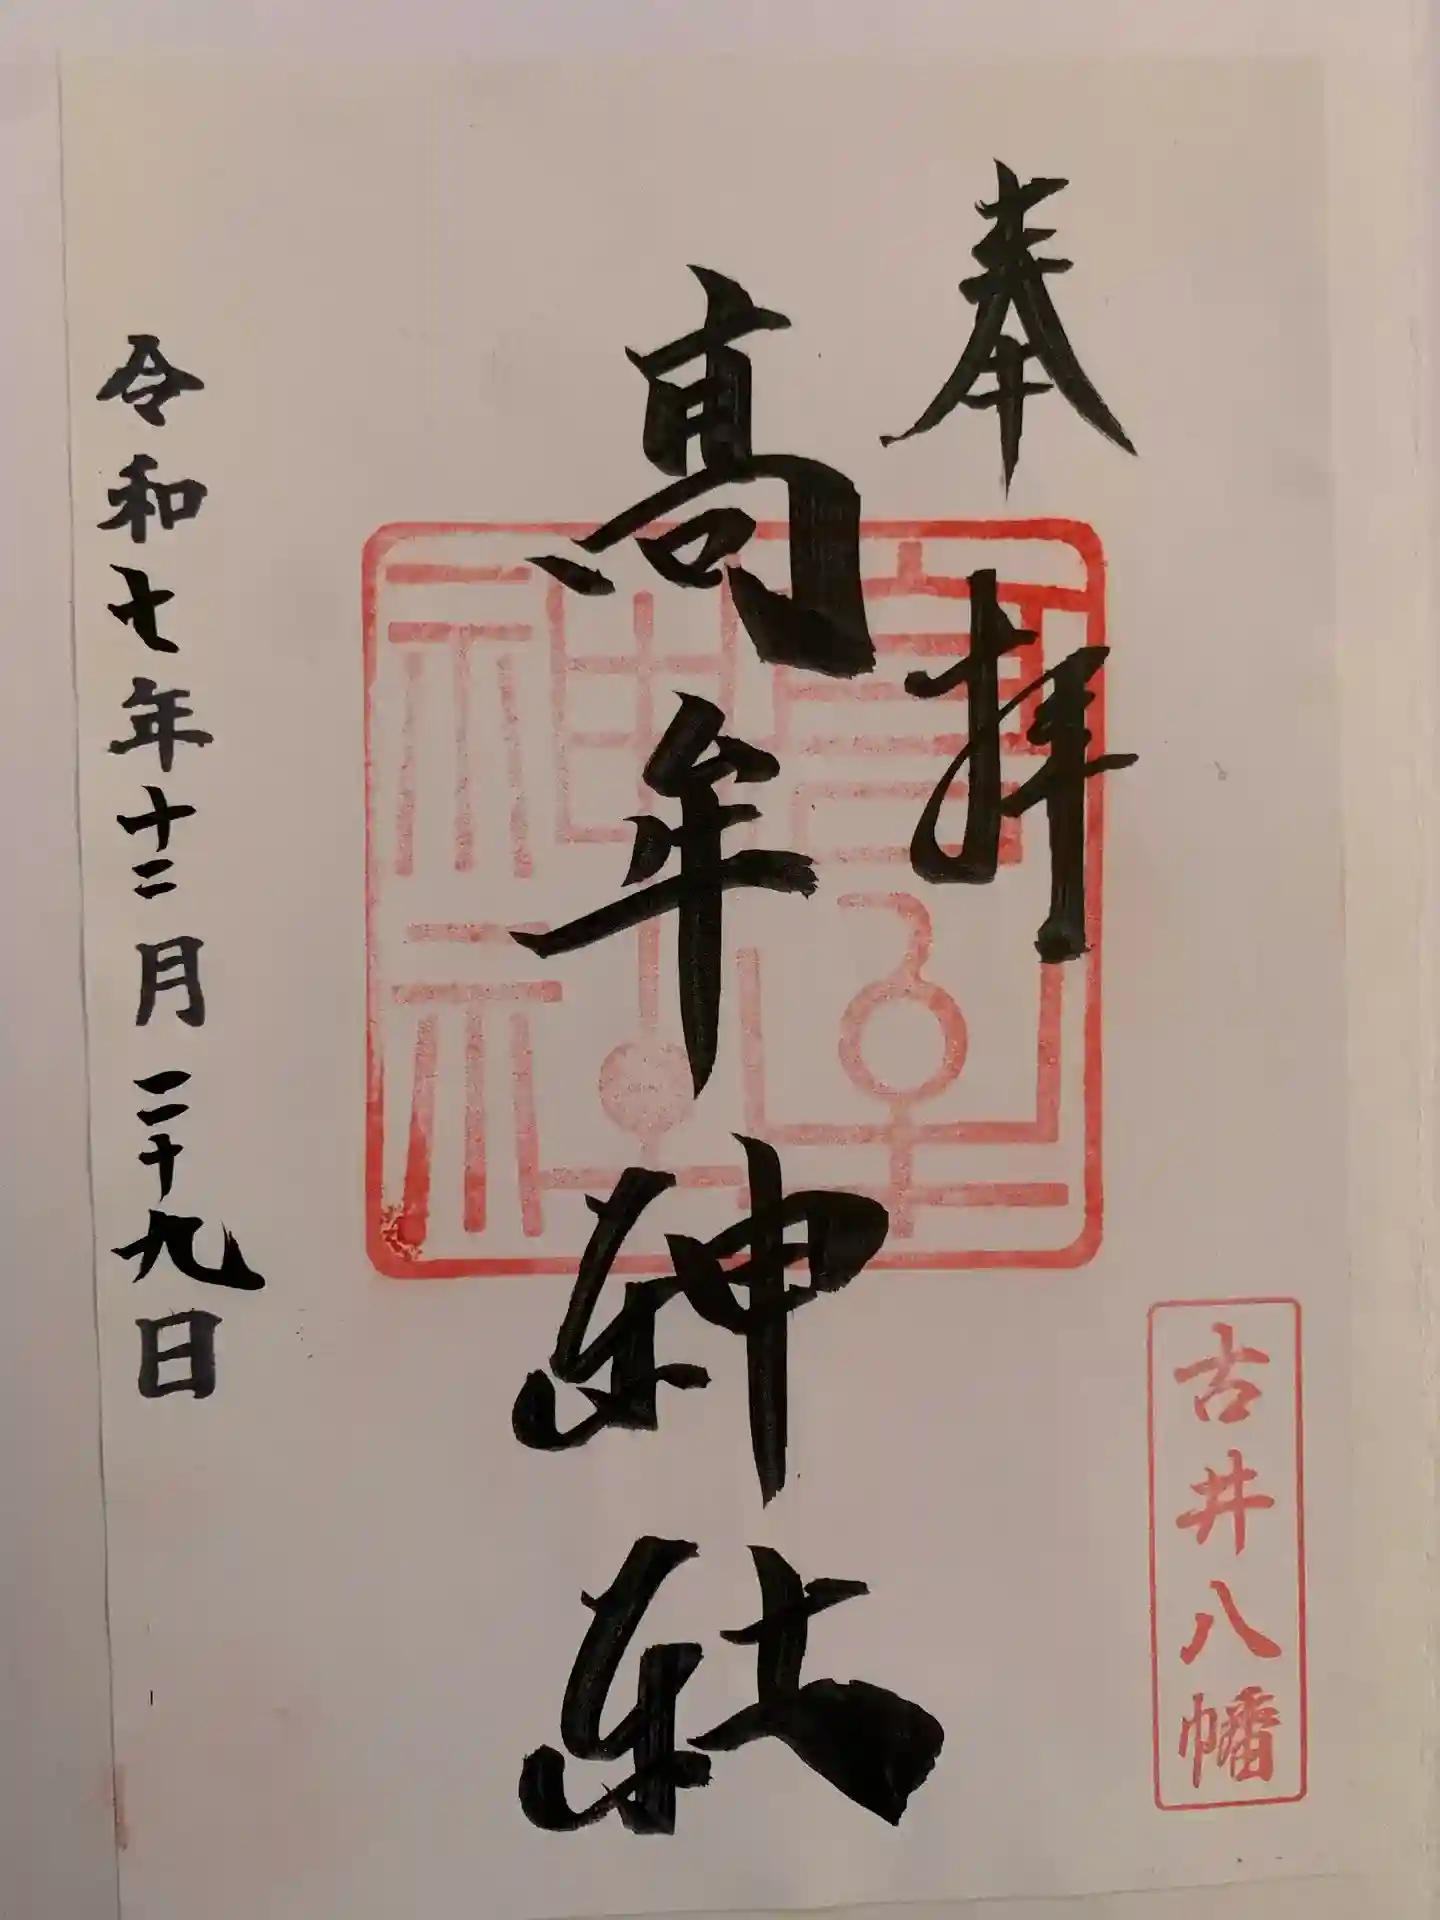 奉拝
高牟神社
高牟神社
古井八幡
令和七年十二月二十九日